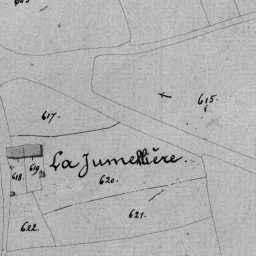 615.
617.
La Jumellière.
618.
619.
620.
621.
622.